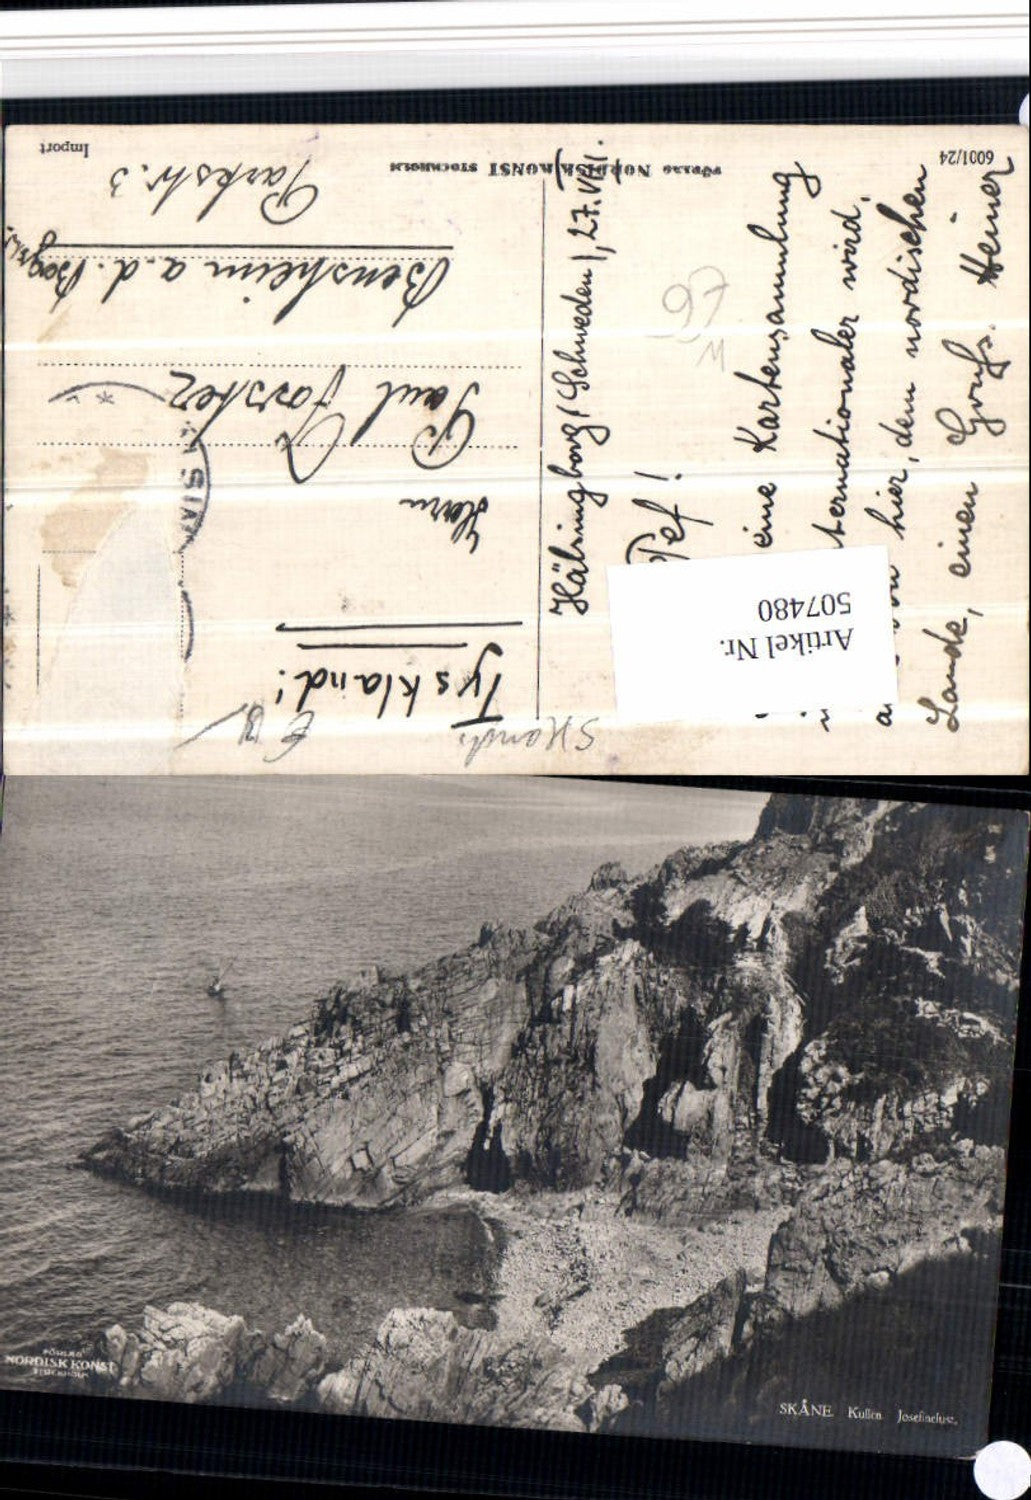 Import
6001/24
FÖRLAG NORDISK KONST STOCKHOLM
Tyskland!
Herrn
Paul Forster
Bensheim a.d. Bergstr.
Parkstr. 3
Hälsingborg (Schweden), 27.VII.
Pef!
eine Kartensammlung
ternationaler wird,
hier, dem nordischen
Lande, einen Gruß. Heiner
Artikel Nr.
507480
FÖRLAG
NORDISK KONST
STOCKHOLM
SKÅNE. Kullen. Josefinelust.